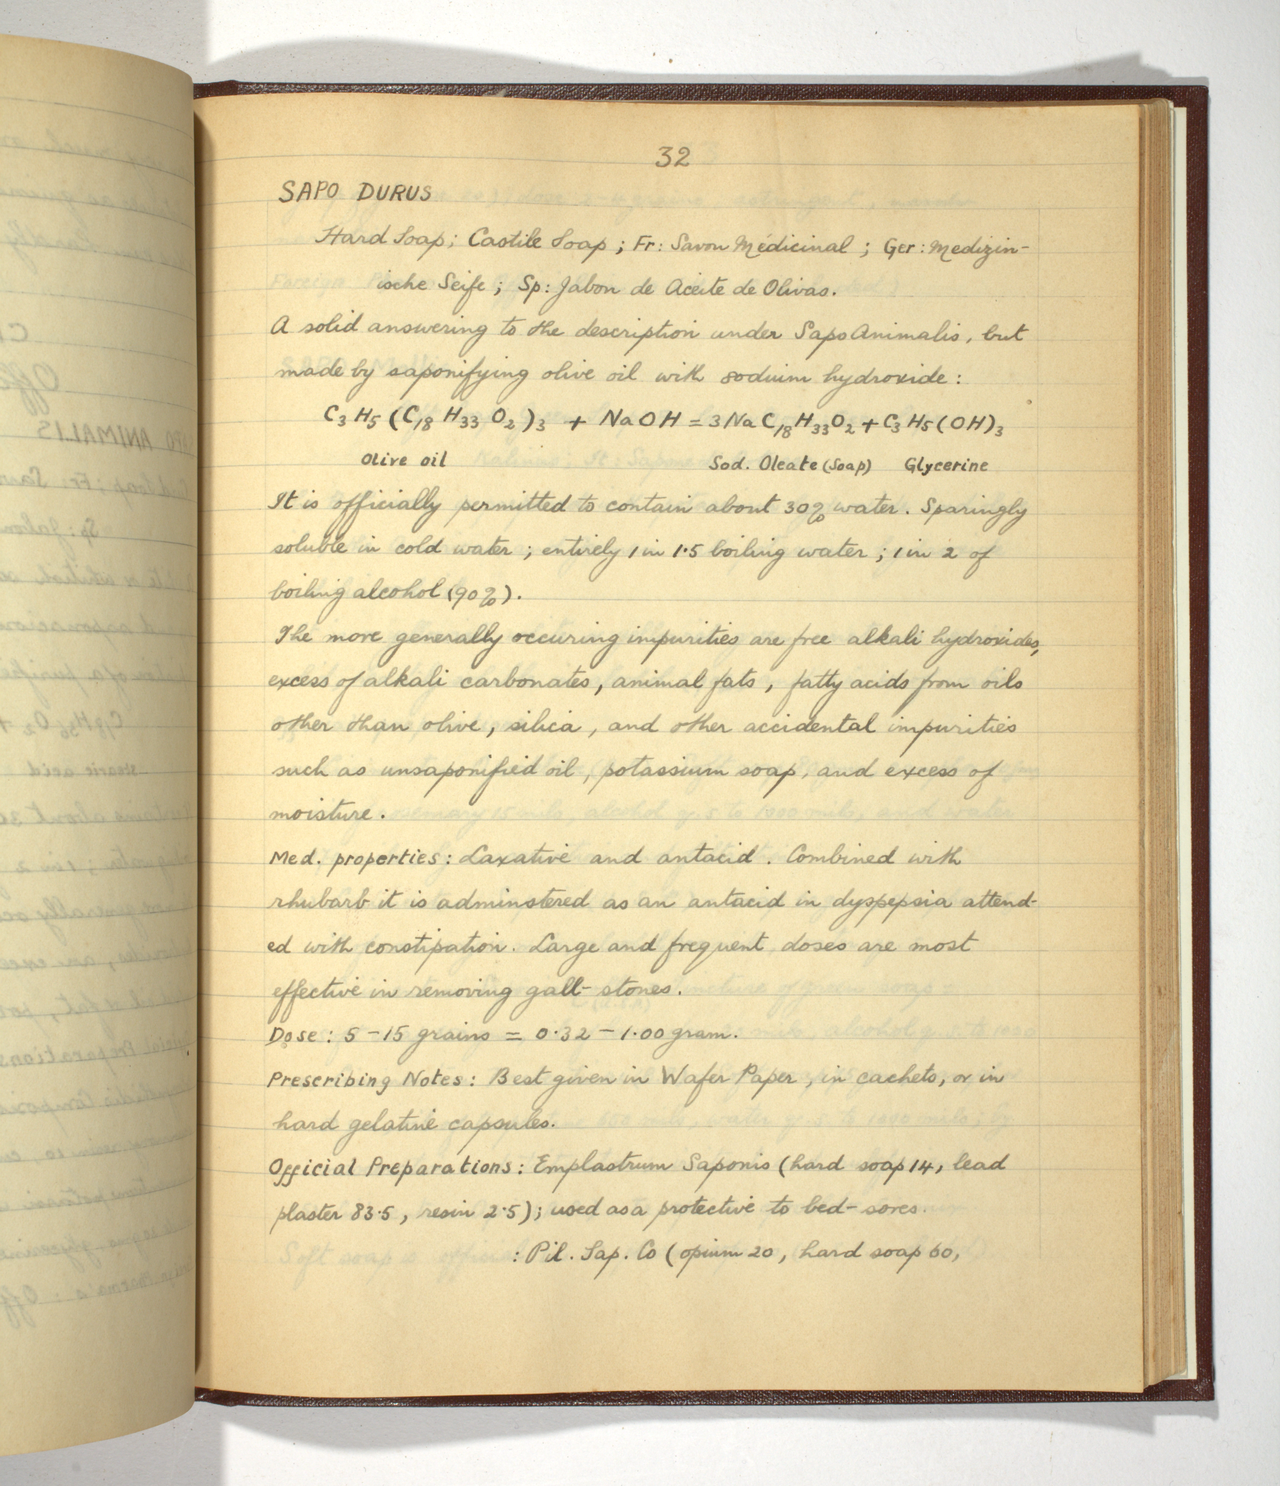 32
SAPO DURUS
Hard Soap; Castile Soap; Fr: Savon Médicinal; Ger: Medizin-
ische Seife; Sp: Jabon de Aceite de Olivas.
A solid answering to the description under Sapo Animalis, but
made by saponifying olive oil with soduim hydroxide:
C₃H₅(C₁₈H₃₃O₂)₃ + NaOH = 3NaC₁₈H₃₃O₂ + C₃H₅(OH)₃
Olive oil Sod. Oleate (Soap) Glycerine
It is officially permitted to contain about 30% water. Sparingly
soluble in cold water; entirely 1 in 1·5 boiling water; 1 in 2 of
boiling alcohol (90%).
The more generally occuring impurities are free alkali hydroxides,
excess of alkali carbonates, animal fats, fatty acids from oils
other than olive, silica, and other accidental impurities
such as unsaponified oil, potassium soap, and excess of
moisture.
Med. properties: Laxative and antacid. Combined with
rhubarb it is adminstered as an antacid in dyspepsia attend-
ed with constipation. Large and frequent doses are most
effective in removing gall-stones.
Dose: 5-15 grains = 0·32-1·00 gram.
Prescribing Notes: Best given in Wafer Paper, in cachets, or in
hard gelatine capsules.
Official Preparations: Emplastrum Saponis (hard soap 14, lead
plaster 83·5, resin 2·5); used as a protective to bed-sores.
: Pil. Sap. Co (opium 20, hard soap 60,